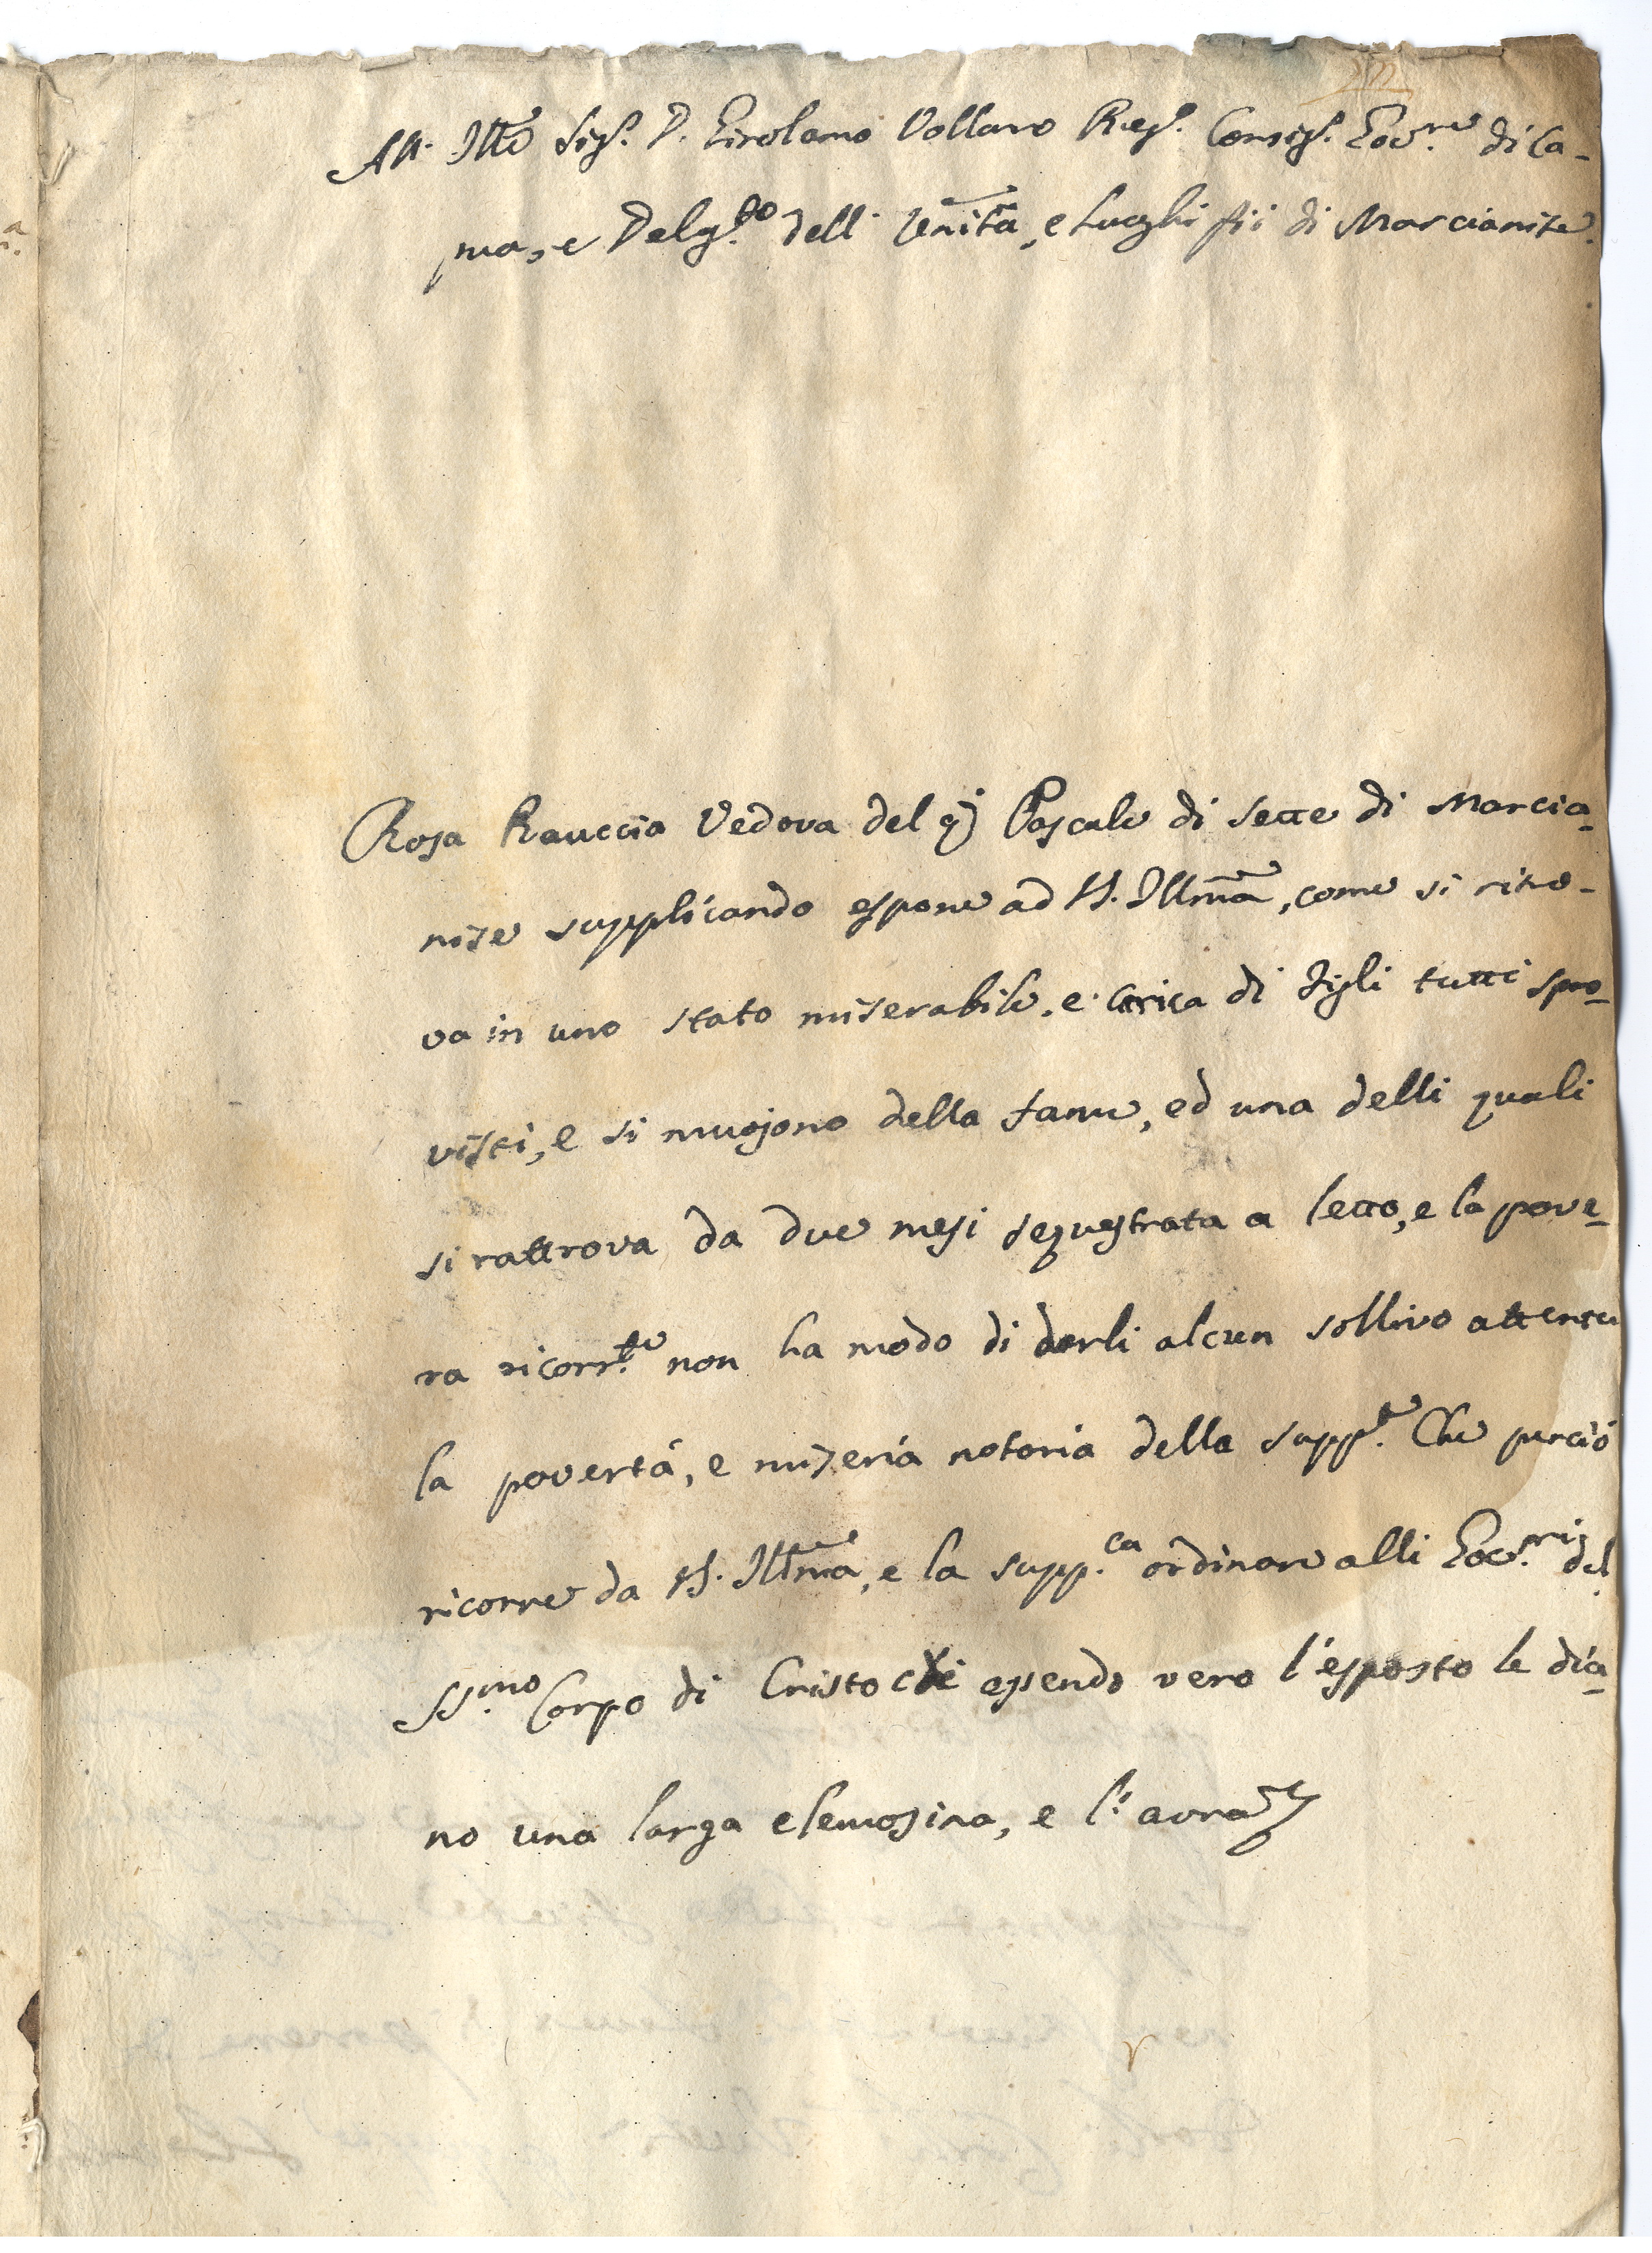 All'Ill.mo Sig.r D. Girolamo Vollaro Reg.o Consig.re Gov.re di Ca-
pua, e Deleg.to dell'Univ.tà, e Luoghi Pii di Marcianise.
Rosa Rauccia Vedova del q.m Pascale di Sette di Marcia-
nise supplicando espone ad V.S. Ill.ma, come si ritro-
va in uno stato miserabile, e carica di figli tutti spro-
visti, e si muojono della fame, ed una delli quali
si rattrova da due mesi sequestrata a letto, e la pove-
ra ricorr.te non ha modo di darli alcun sollivo attenta
la povertá, e miseria notoria della supp.te Che perciò
ricorre da V.S. Ill.ma, e la supp.ca ordinare alli Gov.ri del
SS.mo Corpo di Cristo che essendo vero l'esposto le dia-
no una larga elemosina, e l'avrà